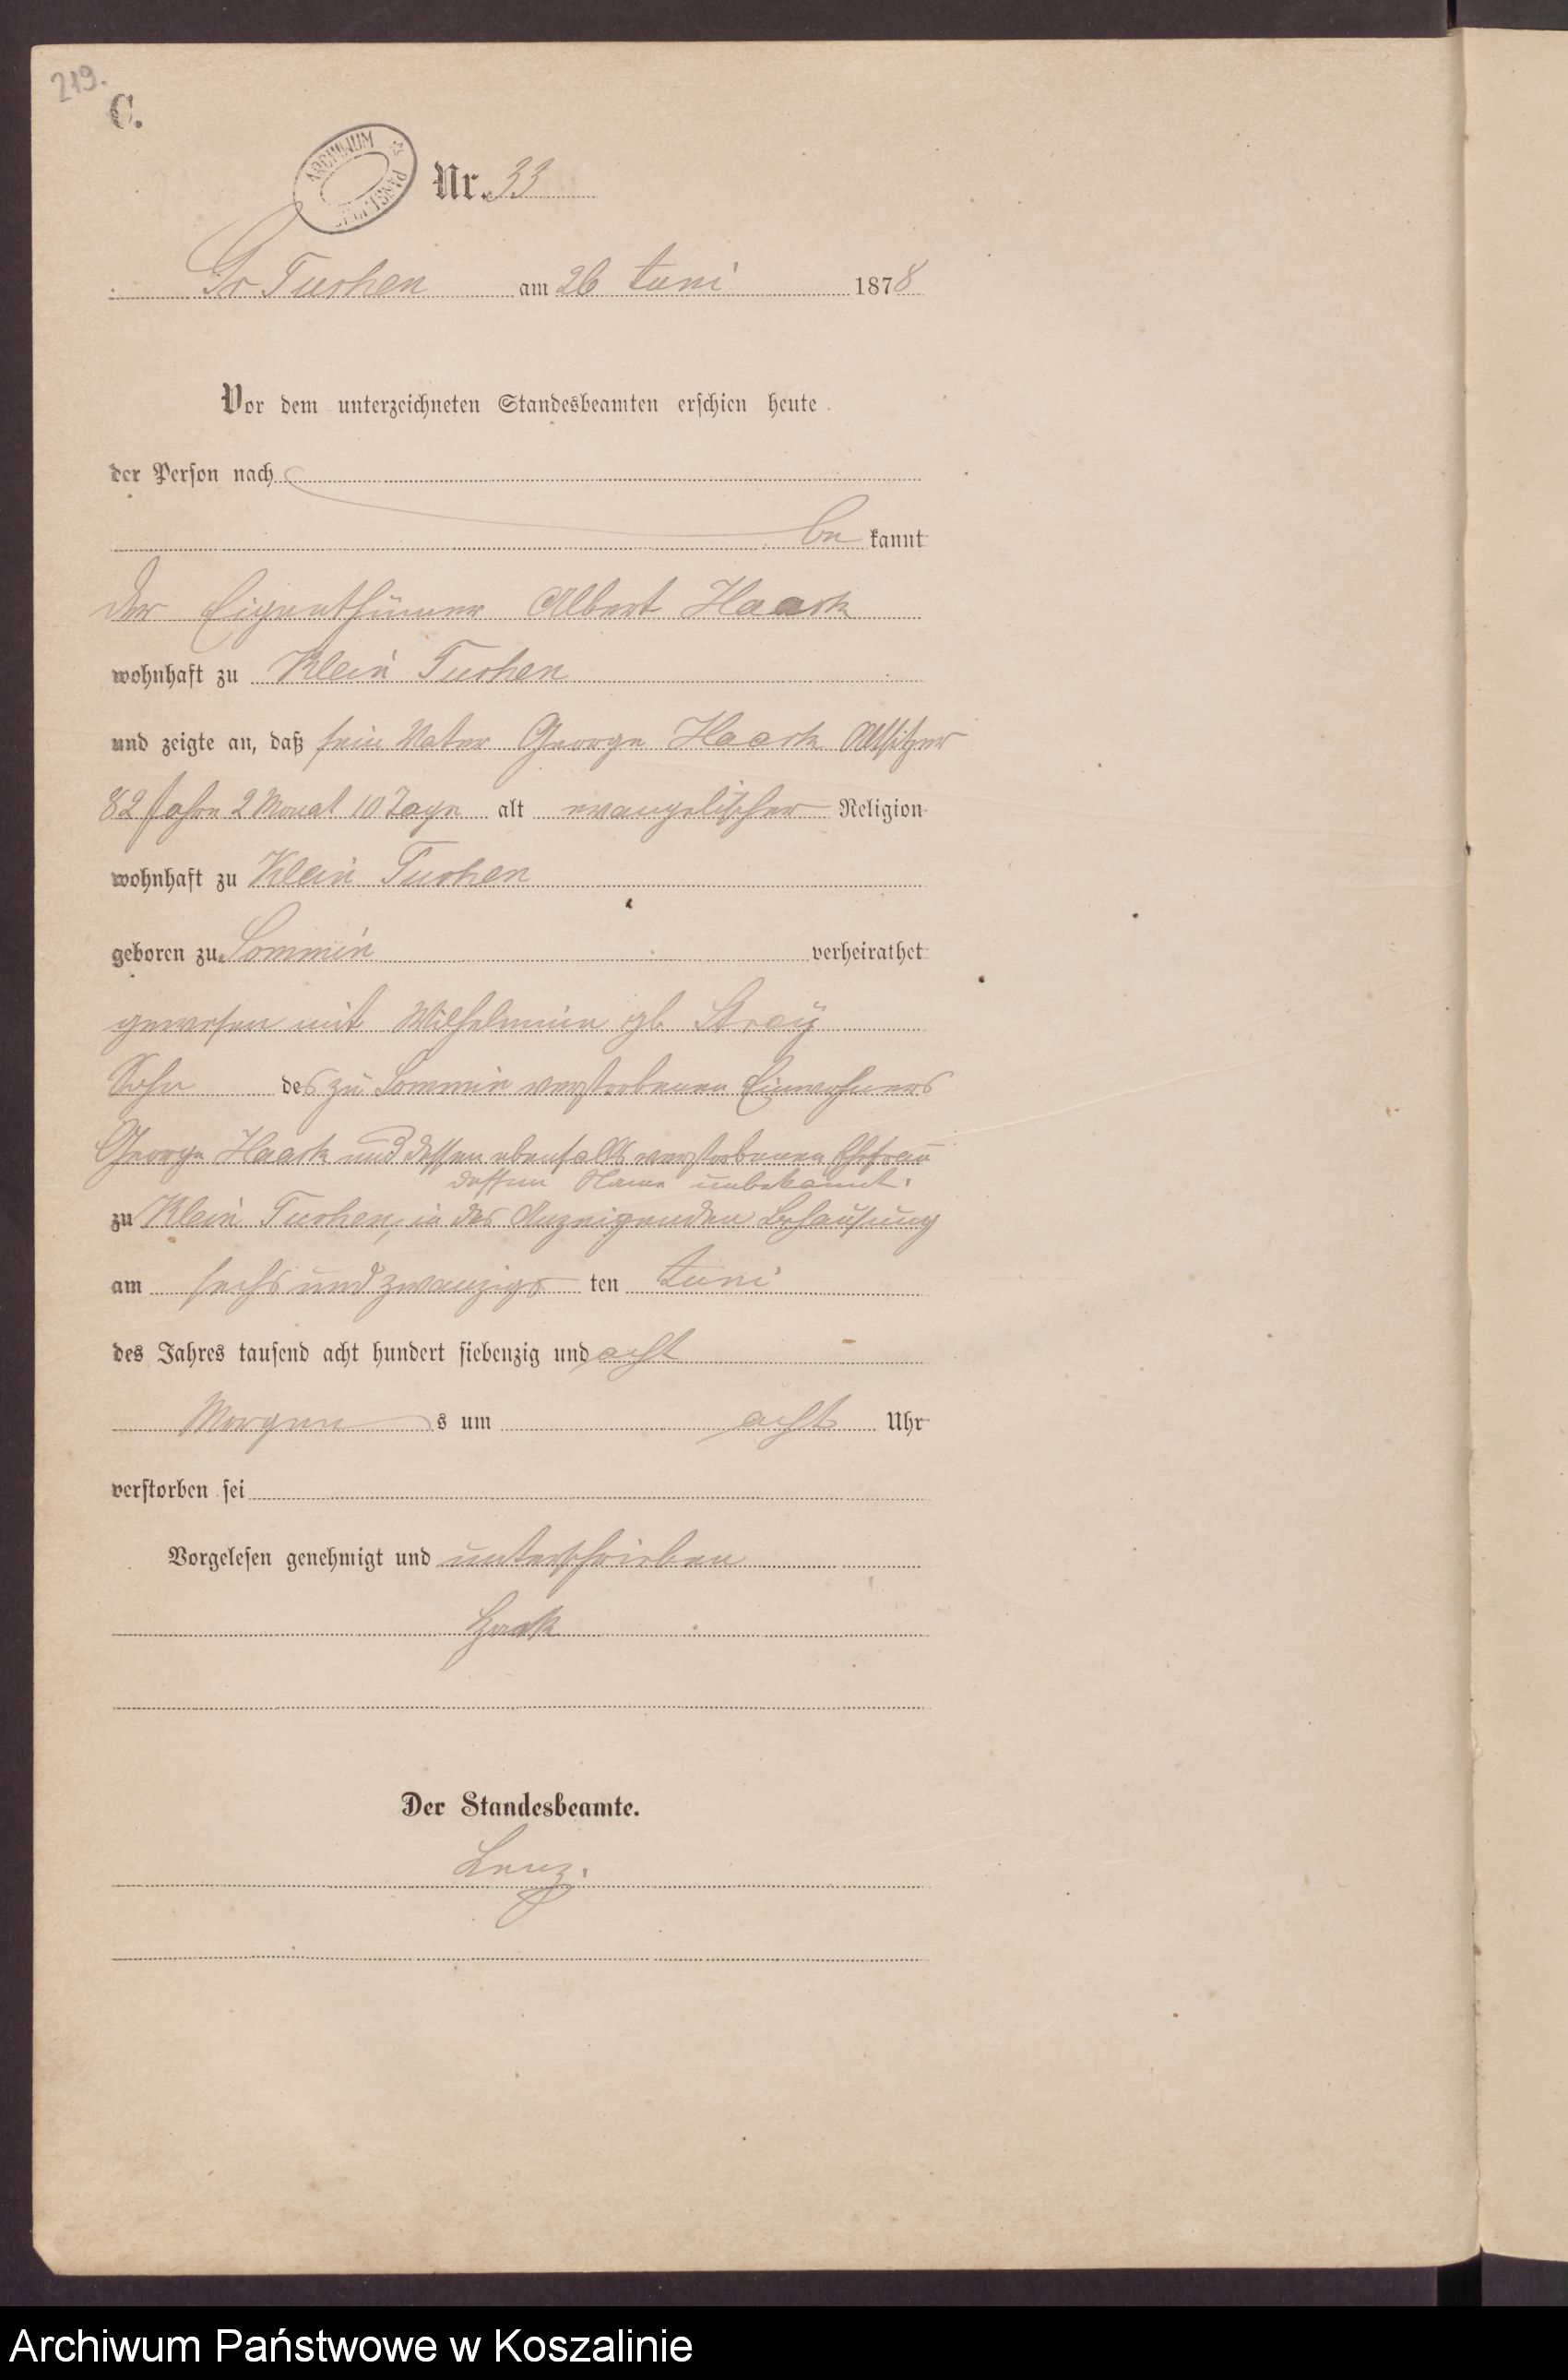 219.
C.
ARCHIWUM
Nr. 33
Gr Tuchen am 26 Juni 1878
Vor dem unterzeichneten Standesbeamten erschien heute
der Person nach
be kannt
der Eigenthümer Albert Haack
wohnhaft zu Klein Tuchen
und zeigte an, daß sein Vater George Haack Altsitzer
82 Jahre 2 Monat 10 Tage alt evangelischer Religion
wohnhaft zu Klein Tuchen
geboren zu Sommin verheirathet
gewesen mit Wilhelmine gb.
Sohn des zu Sommin verstorbenen Einwohners
George Haack und dessen ebenfalls verstorbenen Ehefrau
dessen Name unbekannt.
zu Klein Tuchen, in des Anzeigenden Behausung
am sechs und zwanzigs ten Juni
des Jahres tausend acht hundert siebenzig und acht
Morgen s um acht Uhr
verstorben sei
Vorgelesen genehmigt und unterschrieben
Haak
Der Standesbeamte.
Lenz.
Archiwum Państwowe w Koszalinie